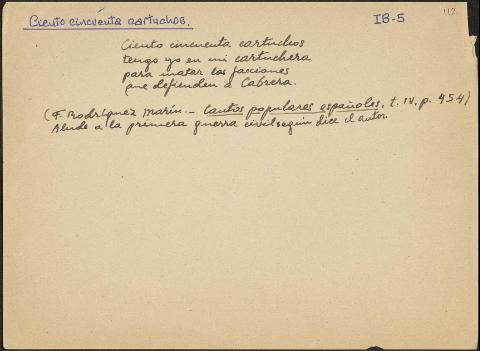 Ciento cincuenta cartuchos.
IB-5
112
Ciento cincuenta cartuchos
tengo yo en mi cartuchera
para matar las facciones
que defienden a Cabrera.
(F. Rodríguez Marín.- Cantos populares españoles, t. IV, p. 454)
Alude a la primera guerra civil según dice el autor.